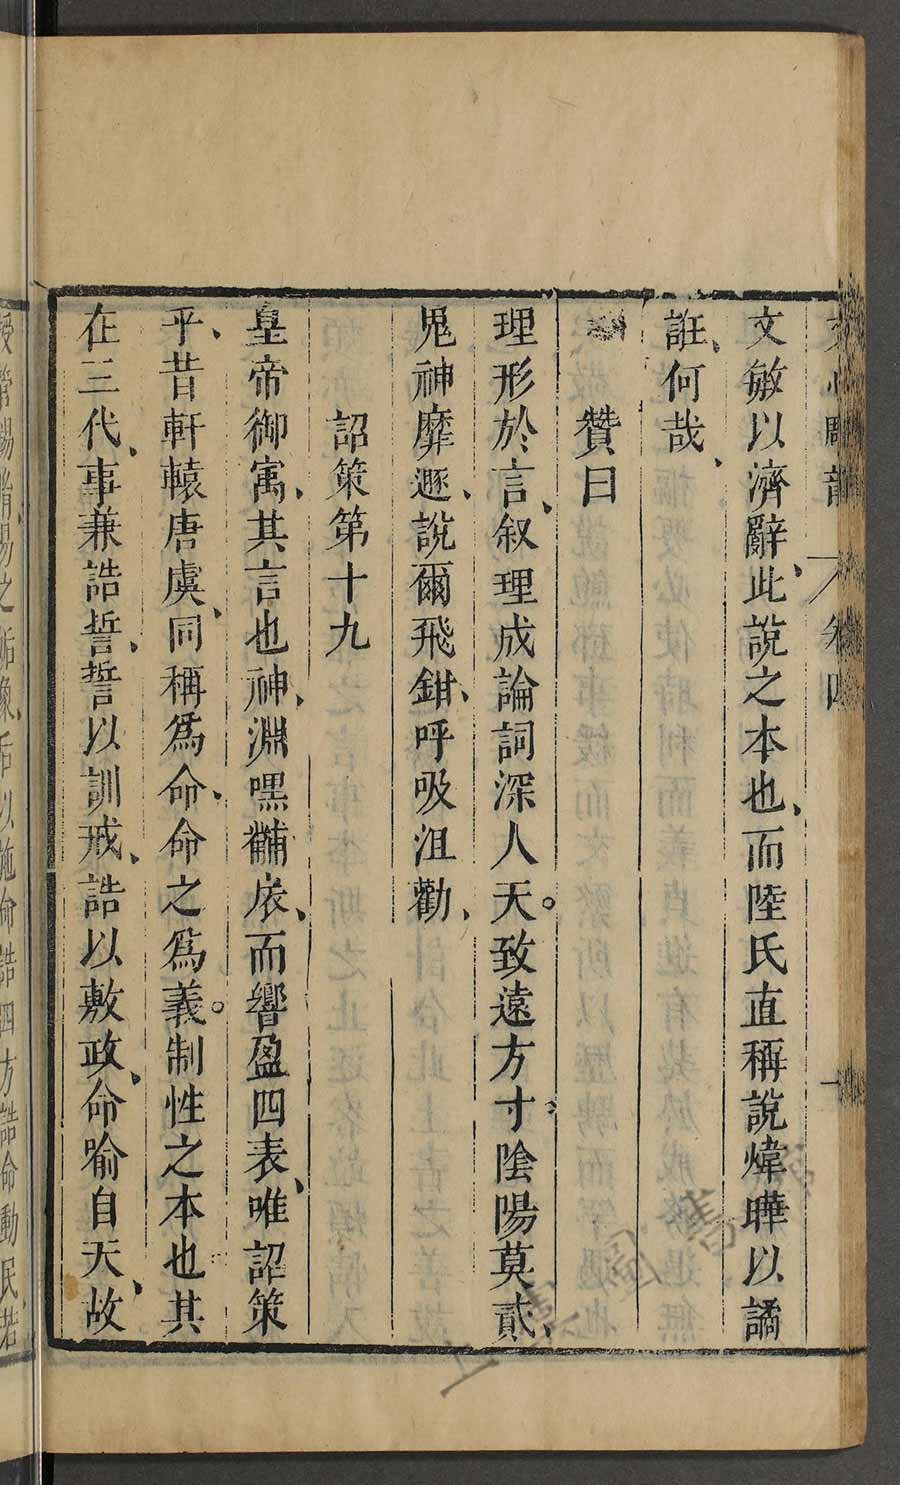 文心雕龍 卷四
文敏以濟辭此說之本也而陸氏直稱說煒曄以譎
誑何哉
贊曰
理形於言叙理成論詞深人天致遠方寸陰陽莫貳
鬼神靡遯說爾飛鉗呼吸沮勸
詔策第十九
皇帝御寓其言也神淵嘿黼扆而響盈四表唯詔策
乎昔軒轅唐虞同稱為命命之為義制性之本也其
在三代事兼誥誓誓以訓戒誥以敷政命喻自天故